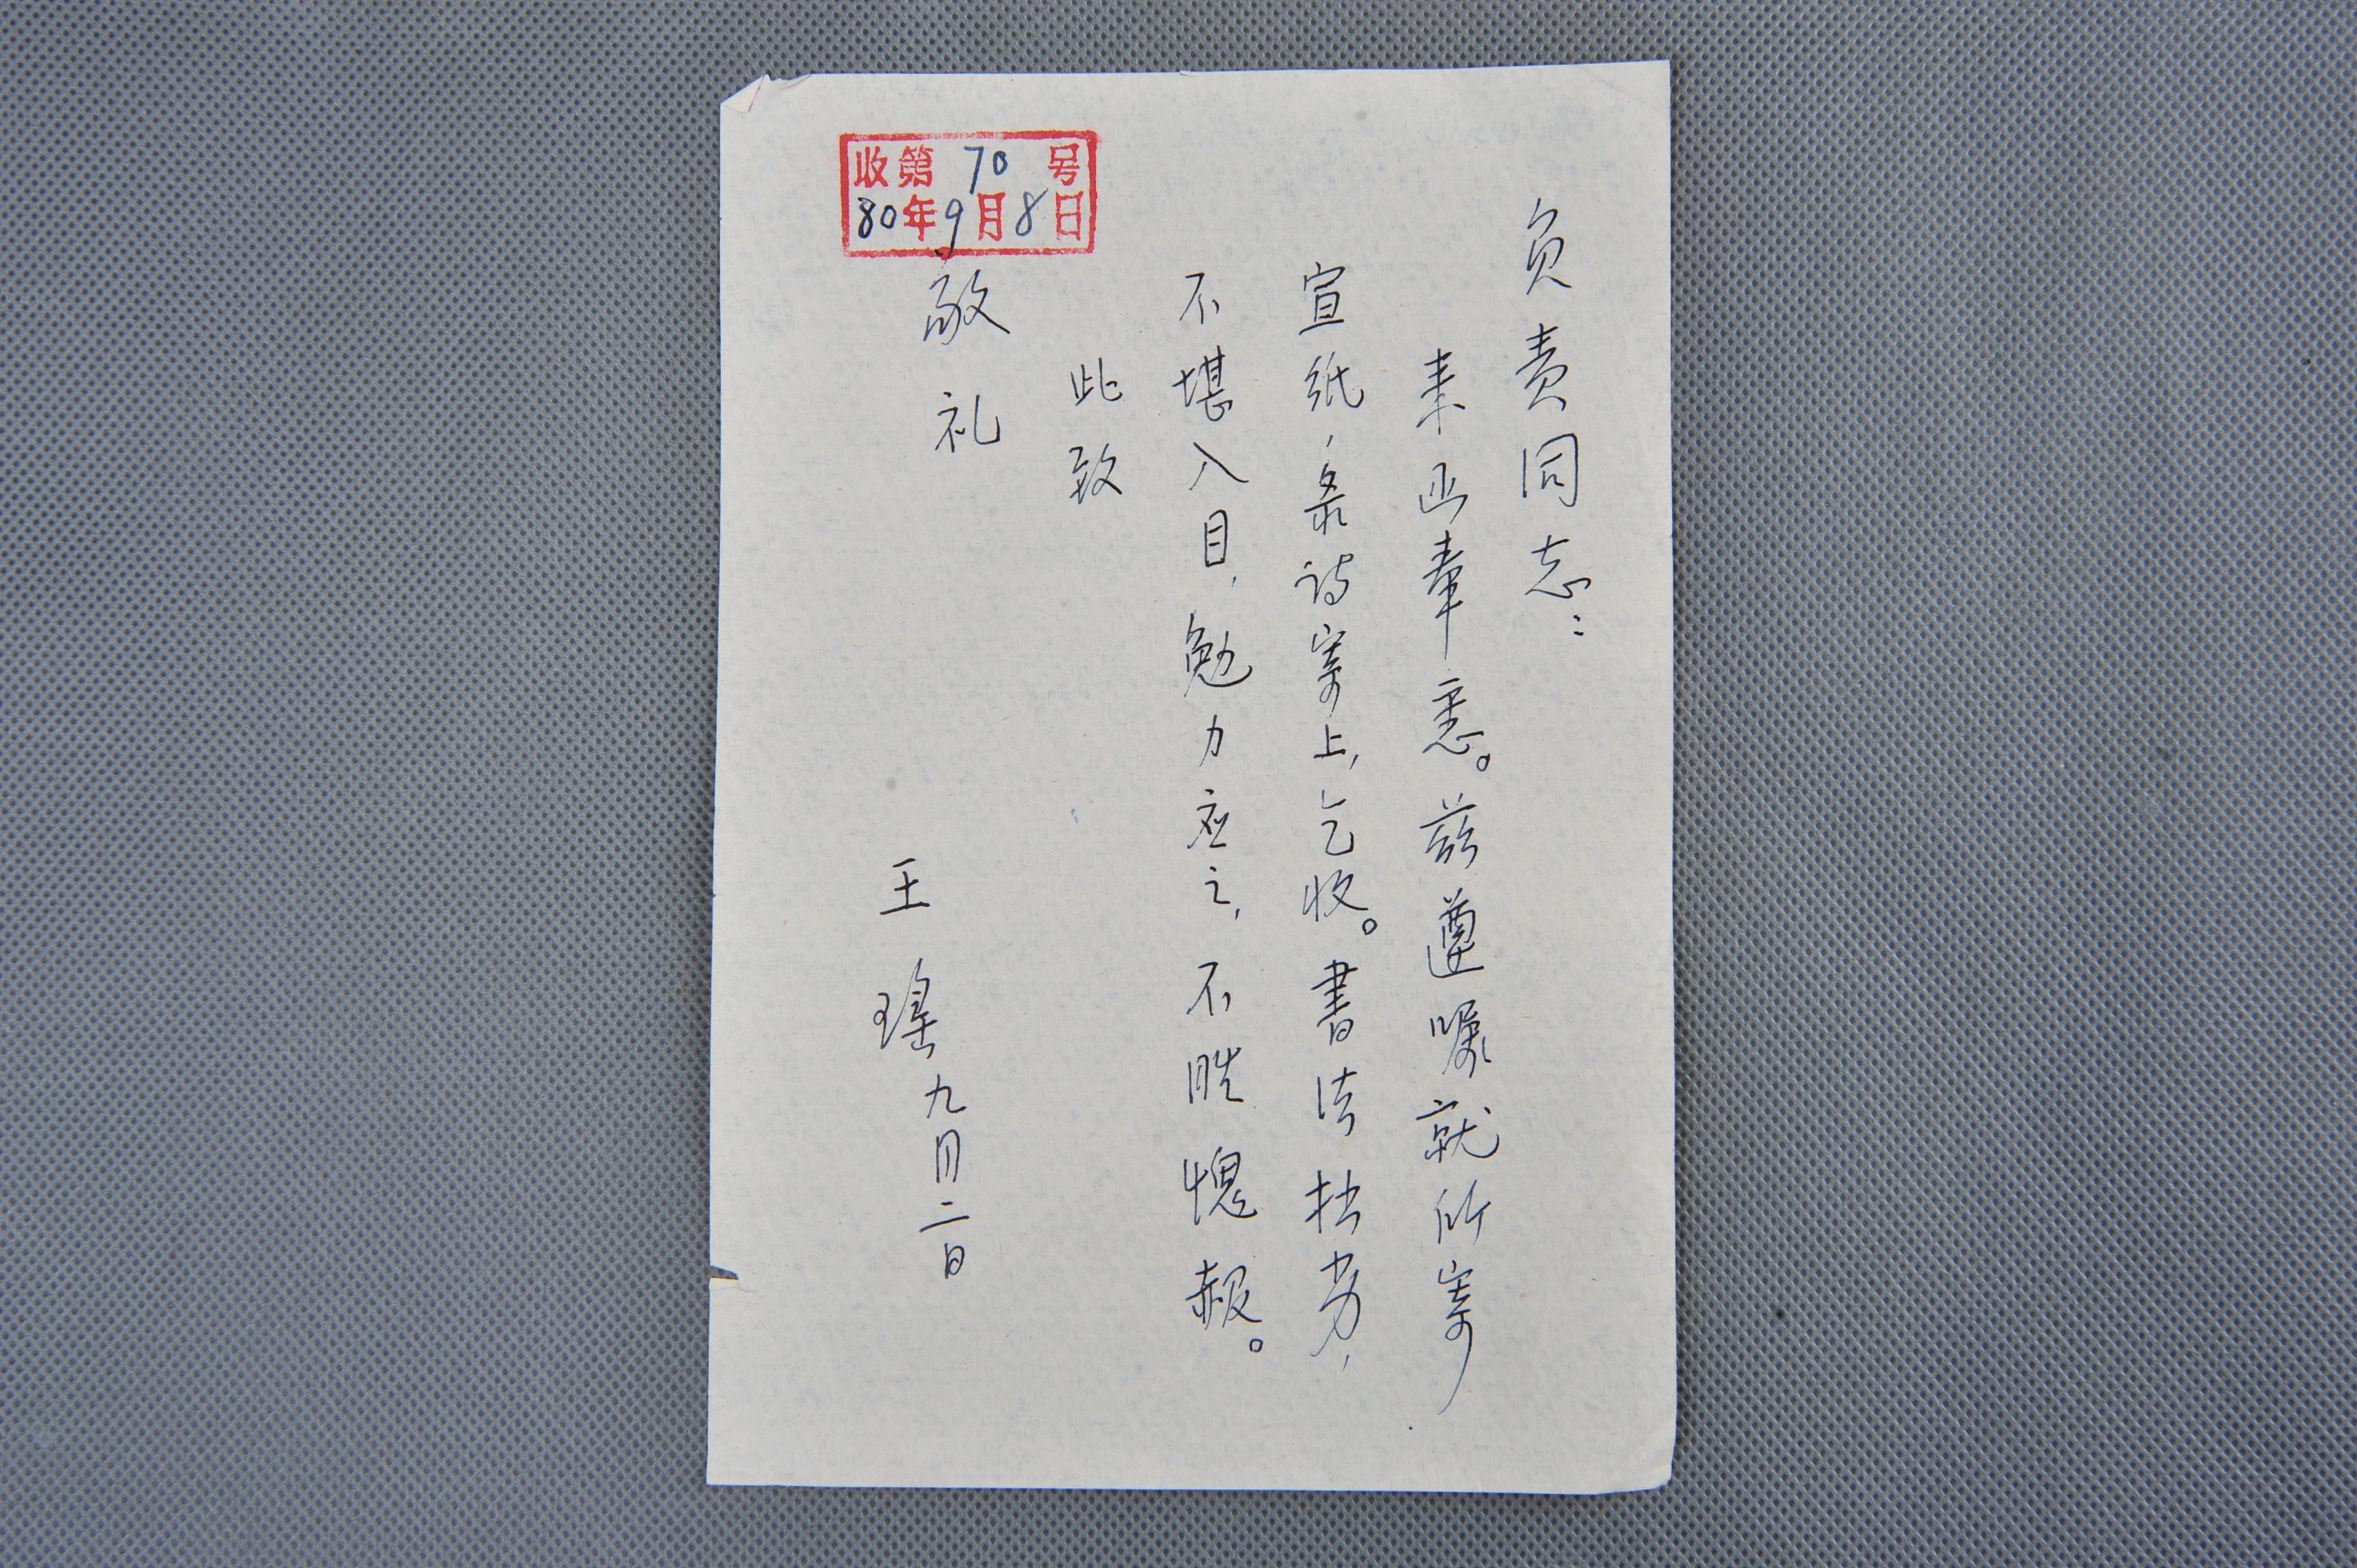 负责同志：
来函奉悉。兹遵嘱就所寄
宣纸，录诗寄上，乞收。書法拙劣，
不堪入目，勉力应之，不胜愧赧。
此致
敬礼
王瑶
九月二日
收第70号
80年9月8日